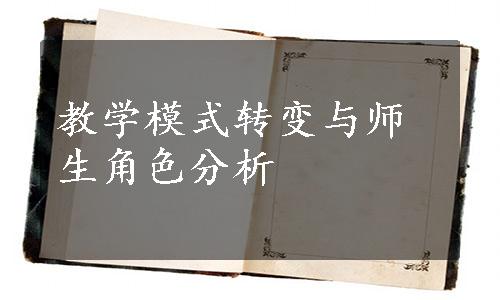 教学模式转变与师
生角色分析